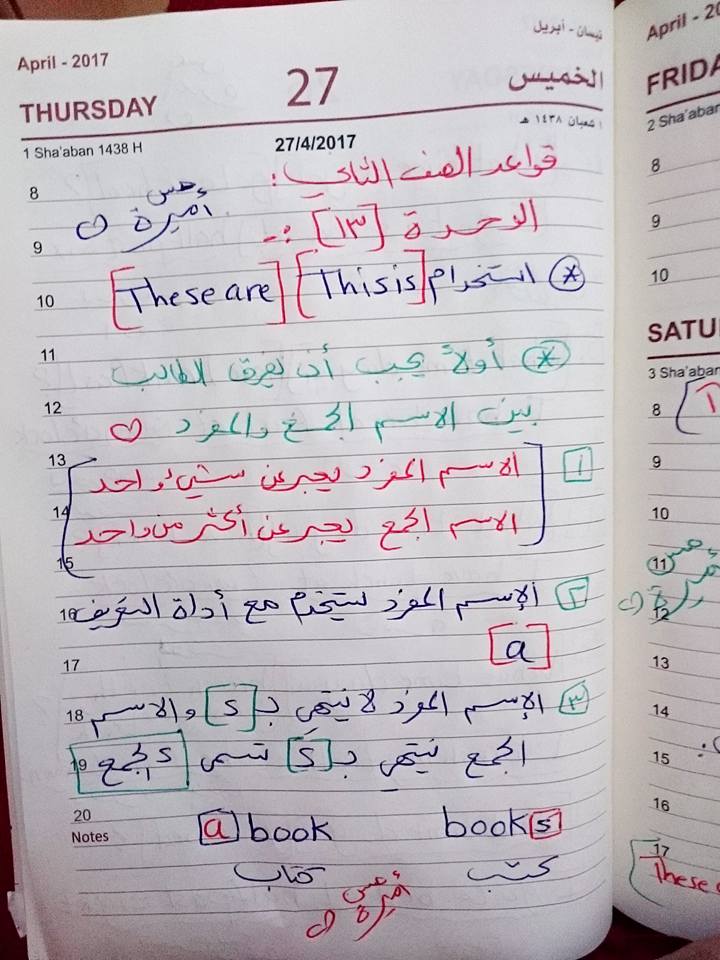 نيسان - أبريل
April - 2017
27
الخميس
THURSDAY
١ شعبان ١٤٣٨ هـ
1 Sha'aban 1438 H
27/4/2017
قواعد الصف الثاني:
همس
أميرة
الوحدة [١٣] :-
* استخدام [This is] [These are]
* أولاً يجب أن يفرق الطالب
بين الاسم الجمع والمفرد
١ الاسم المفرد يعبر عن شيء واحد
الاسم الجمع يعبر عن أكثر من واحد
٢ الإسم المفرد يستخدم مع أداة التعريف
[a]
٣ الإسم المفرد لا ينتهي بـ [s] والاسم
الجمع ينتهي بـ [s] تسمى s الجمع
[a] book books
كتاب كتب
همس
أميرة
8
9
10
11
12
13
14
15
16
17
18
19
20
Notes
April - 20
FRIDA
2 Sha'aban
8
9
10
SATU
3 Sha'aban
8
9
10
11
همس
أميرة
12
13
14
15
16
17
These